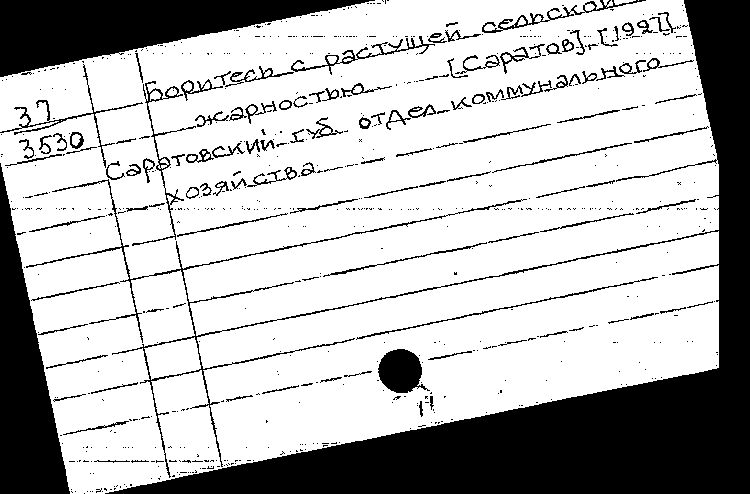 37
3530
Боритесь с растущей сельской
жарностью [Саратов], [1927]
Саратовский губ. отдел коммунального
хозяйства